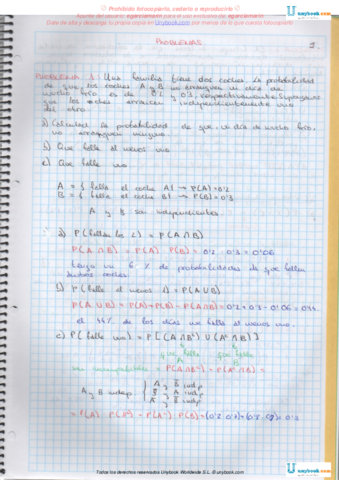 Prohibido fotocopiarlo, cederlo o reproducirlo
Apuntes del usuario, para el uso exclusivo de
Date de alta y descarga tu propia copia en Unybook.com por menos de lo que cuesta fotocopiarlo
unybook.com
PROBLEMAS
PROBLEMA 1. Una familia tiene dos coches. La probabilidad
de que los coches A y B no arranquen un día de
mucho frío es de 0'2 y 0'3, respectivamente. Supongamos
que los coches arrancan independientemente uno
del otro.
a) Calcular la probabilidad de que un día de mucho frío,
no arranquen ninguno.
b) Que falle al menos uno
c) Que falle uno
A = { falla el coche A } → P(A)=0'2
B = { falla el coche B } → P(B)=0'3
A y B son independientes.
a) P(fallen los 2) = P(A∩B)
P(A∩B) = P(A)·P(B) = 0'2·0'3 = 0'06
Tengo un 6% de probabilidades de que fallen
ambos coches.
b) P(falle al menos 1) = P(A∪B)
P(A∪B) = P(A)+P(B)-P(A∩B) = 0'2+0'3-0'06 = 0'44
el 44% de los días falla al menos uno.
c) P(falle uno) = P[(A∩Bᶜ)∪(Aᶜ∩B)]
que falle A
que falle B
= P(A∩Bᶜ) + P(Aᶜ∩B) =
A y B indep
A y B̄ indp
Ā y B indp
= P(A)·P(Bᶜ) + P(Aᶜ)·P(B) =
Todos los derechos reservados Unybook Worldwide S.L. © unybook.com
unybook.com